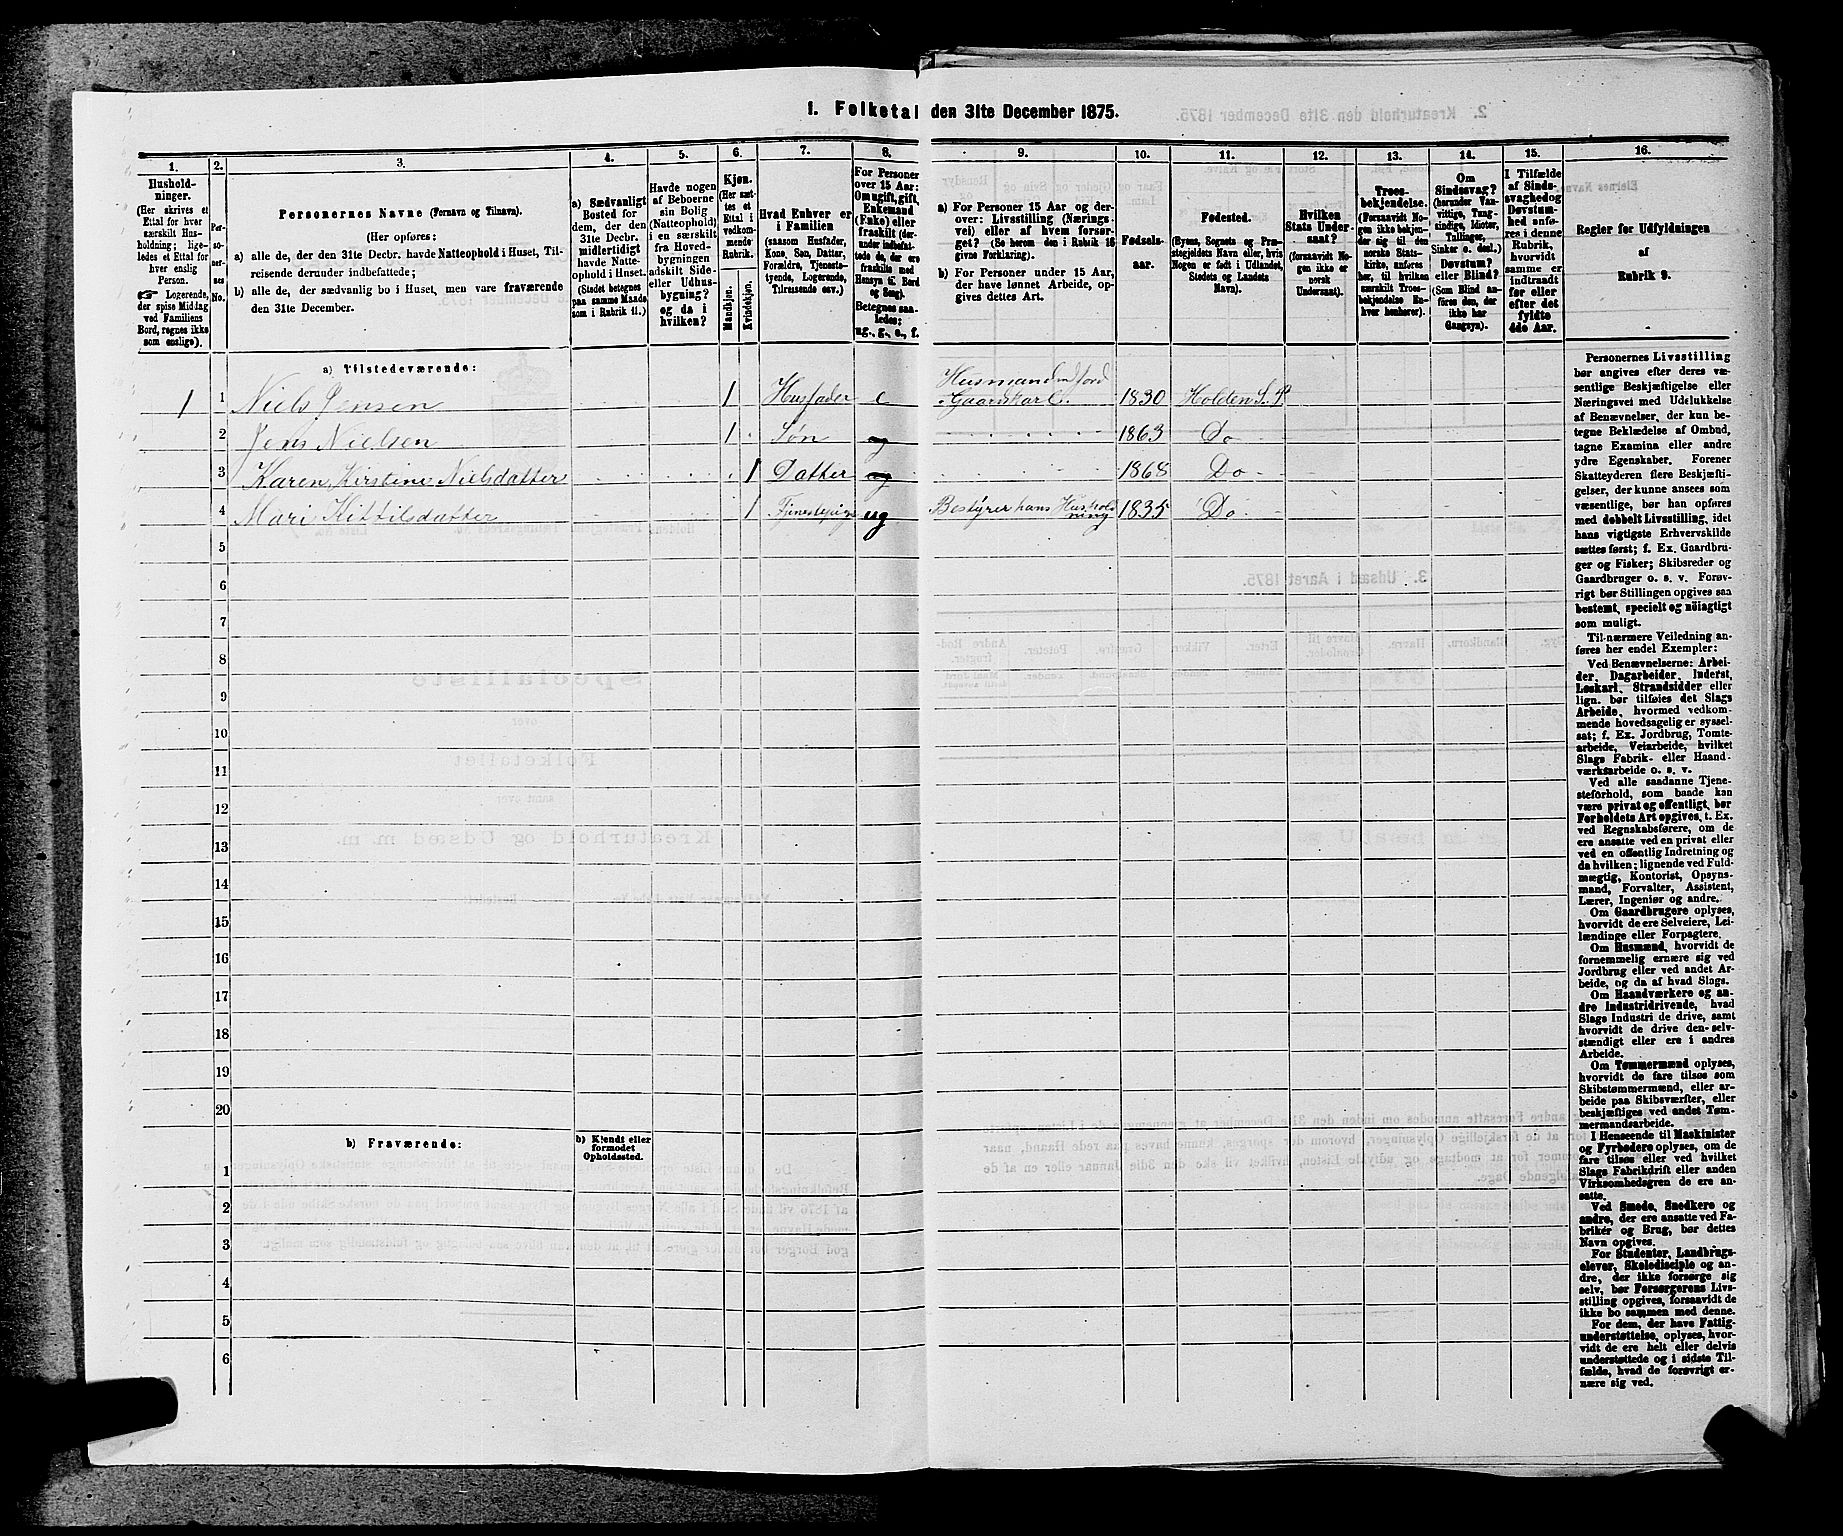 1. Folketal den 31te December 1875.
1.
2.
3.
4.
5.
6.
7.
8.
9.
10.
11.
12.
13.
14.
15.
16.
Husholdninger.
(Her skrives et
Ettal for hver
særskilt Husholdning;
ligeledes et Ettal for
hver enslig
Person.
☞ Logerende,
der spise Middag
ved Familiens
Bord, regnes ikke
som enslige).
Personernes No.
Personernes Navne (Fornavn og Tilnavn).
(Her opføres:
a) alle de, der den 31te Decbr. havde Natteophold i Huset, Tilreisende derunder indbefattede;
b) alle de, der sædvanlig bo i Huset, men vare fraværende
den 31te December.
a) Sædvanligt
Bosted for
dem, der den
31te Decbr.
midlertidigt
havde Natteophold i Huset.
(Stedet betegnes
paa samme Maade
som i Rubrik 11.)
Havde nogen
af Beboerne
sin Bolig
(Natteophold)
i en særskilt
fra Hovedbygningen
adskilt Side-
eller Udhusbygning?
og da i
hvilken?
Kjøn.
(Her sættes et
Ettal i
vedkommende
Rubrik.
Mandkjøn.
Kvindekjøn.
Hvad Enhver er
i Familien
(saasom Husfader,
Kone, Søn, Datter,
Forældre, Tjenestetyende, Logerende,
Tilreisende osv.)
For Personer
over 15 Aar:
Om ugift, gift,
Enkemand
(Enke) eller
fraskilt
Betegnes saaledes:
ug., g., e., f.
a) For Personer 15 Aar og derover: Livsstilling (Næringsvei) eller af hvem forsørget? (Se herom den i Rubrik 16
givne Forklaring).
b) For Personer under 15 Aar,
der have lønnet Arbeide, opgives dettes Art.
Fødselsaar.
Fødested.
(Byens, Sognets og Præstegjeldets Navn eller, hvis
Nogen er født i Udlandet,
Stedets og Landets
Navn).
Hvilken
Stats Undersaat?
(forsaavidt Nogen ikke er
norsk
Undersaat).
Troesbekjendelse.
(Forsaavidt Nogen ikke bekjender sig til den
norske Statskirke, anføres
her, til hvilken
særskilt Troesbekjendelse Enhver henhører).
Om
Sindssvag?
(herunder Vanvittige, Tungsindige, Idioter,
Tullinger,
Sinker o. desl.)
Døvstum?
eller Blind?
(Som Blind anføres den, der
ikke har
Gangsyn).
I Tilfælde
af Sindssvaghed og
Døvstumhed anføres i denne
Rubrik,
hvorvidt
samme er
indtraadt
før eller
efter det
fyldte
4de Aar.
Regler for Udfyldningen
af
Rubrik 9.
a) Tilstedeværende:
1 1 Niels Jensen 1 Husfader e Husmand med Jord Gaardskarl. 1830 Holden S. P
2 Jens Nielsen 1 Søn ug 1863 Do
3 Karen Kirstine Nielsdatter 1 Datter ug 1868 Do
4 Mari Kittilsdatter 1 Tjenestepige ug Bestyrer hans Husholdning 1835 Do
5
6
7
8
9
10
11
12
13
14
15
16
17
18
19
20
b) Fraværende:
b) Kjendt eller
formodet
Opholdssted.
1
2
3
4
5
6
Personernes Livsstilling
bør angives efter deres væsentlige Beskjæftigelse eller
Næringsvei med Udelukkelse
af Benævnelser, der kun betegne Beklædelse af Ombud,
tagne Examina eller andre
ydre Egenskaber. Forener
Skatteyderen flere Beskjæftigelser, der kunne ansees som
væsentlige, bør han opføres
med dobbelt Livsstilling, idet
hans vigtigste Erhvervskilde
sættes først; f. Ex. Gaardbruger og Fisker; Skibsreder og
Gaardbruger o. s. v. Forøvrigt bør Stillingen opgives saa
bestemt, specielt og nøiagtigt
som muligt.
Til nærmere Veiledning anføres her endel Exempler:
Ved Benævnelserne: Arbeider, Dagarbeider, Inderst,
Løskarl, Strandsidder eller
lign. bør tilføies det Slags
Arbeide, hvormed vedkommende hovedsagelig er sysselsat; f. Ex. Jordbrug, Tomtearbeide, Veiarbeide, hvilket
Slags Fabrik- eller Haandværksarbeide o. s. v.
Ved alle saadanne Tjenesteforhold, som baade kan
være privat og offentligt, bør
Forholdets Art opgives, t. Ex.
ved Regnskabsførere, om de
ere ansatte ved en privat eller
ved en offentlig Indretning og
da hvilken; lignende ved Fuldmægtig, Kontorist, Opsynsmand, Forvalter, Assistent,
Lærer, Ingeniør og andre.
Om Gaardbrugere oplyses,
hvorvidt de ere Selveiere, Leilændinge eller Forpagtere.
Om Husmænd, hvorvidt de
fornemmelig ernære sig ved
Jordbrug eller ved andet Arbeide, og da af hvad Slags.
Om Haandværkere og andre Industridrivende, hvad
Slags Industri de drive, samt
hvorvidt de drive den selvstændigt eller ere i andres
Arbeide.
Om Tømmermænd oplyses,
hvorvidt de fare tilsøs som
Skibstømmermænd, eller arbeide paa Skibsværfter, eller
beskjæftiges ved andet Tømmermandsarbeide.
I Henseende til Maskinister
og Fyrbødere oplyses, om de
fare tilsøs eller ved hvilket
Slags Fabrikdrift eller anden
Virksomhedsgren de ere ansatte.
Ved Smede, Snedkere og
andre, der ere ansatte ved Fabriker og Brug, bør dettes
Navn opgives.
For Studenter, Landbrugselever, Skoledisciple og andre, der ikke forsørge sig
selv, bør Forsørgerens Livsstilling opgives, forsaavidt de
ikke bo sammen med denne.
For dem, der have Fattigunderstøttelse, oplyses, hvorvidt de ere helt eller delvis
understøttede og i sidste Tilfælde, hvad de forøvrigt ernære sig ved.